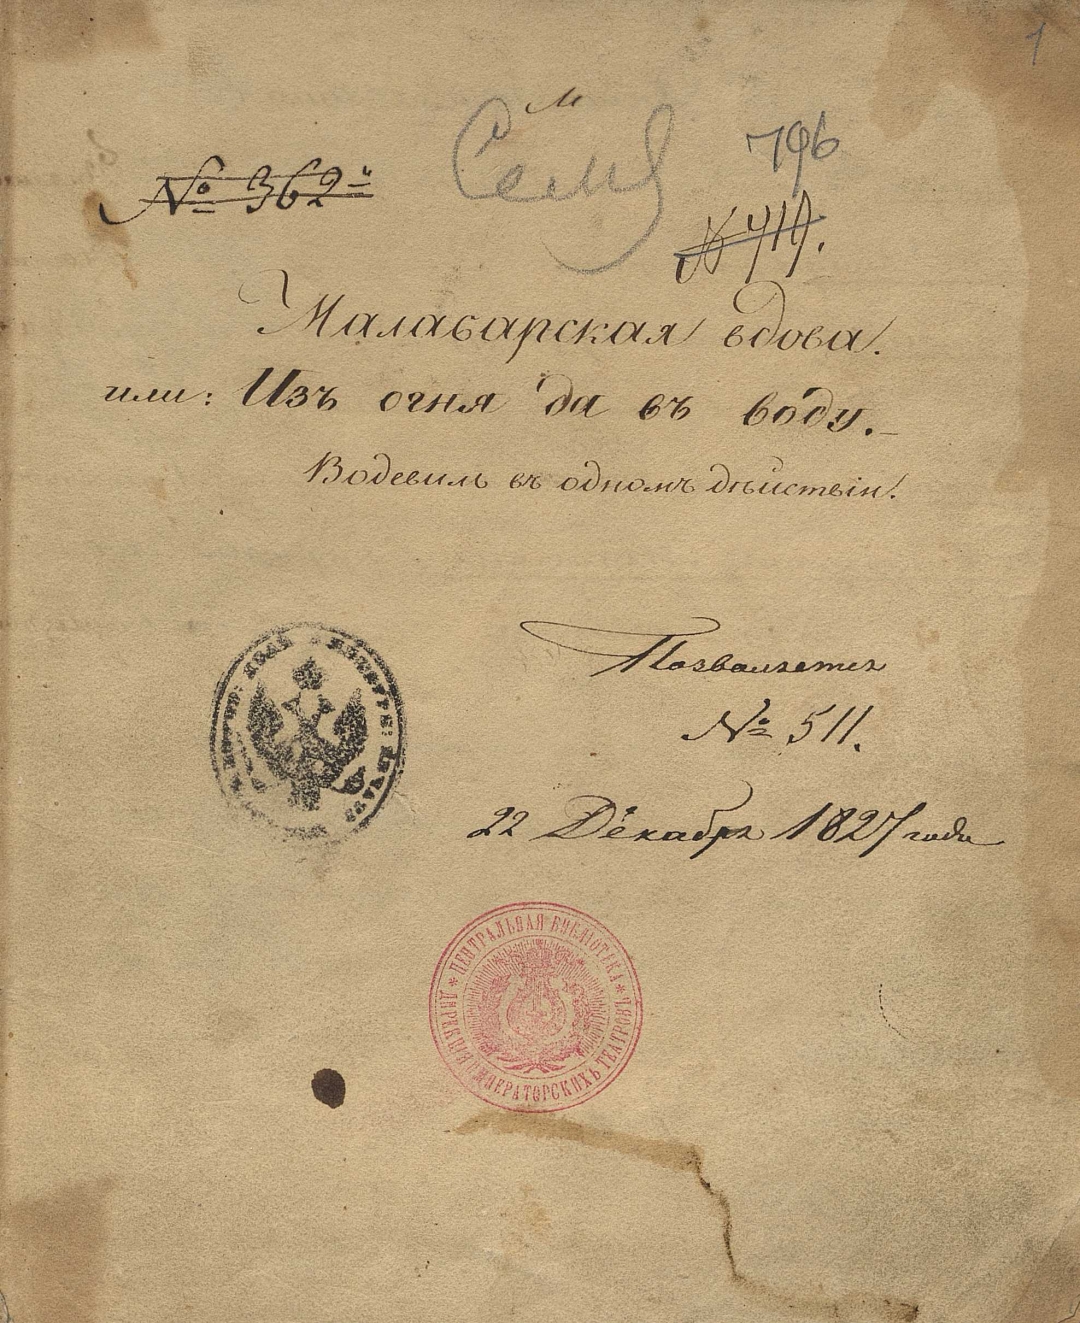 1
м
796
№ 362й
№ 419.
Малабарская вдова.
или: Изъ огня да въ воду.
Водевиль въ одномъ дѣйствіи.
Позволяется
№ 511.
22 Декабря 1827 года
ЦЕНТРАЛЬНАЯ БИБЛІОТЕКА * ДИРЕКЦІИ ИМПЕРАТОРСКИХЪ ТЕАТРОВЪ *